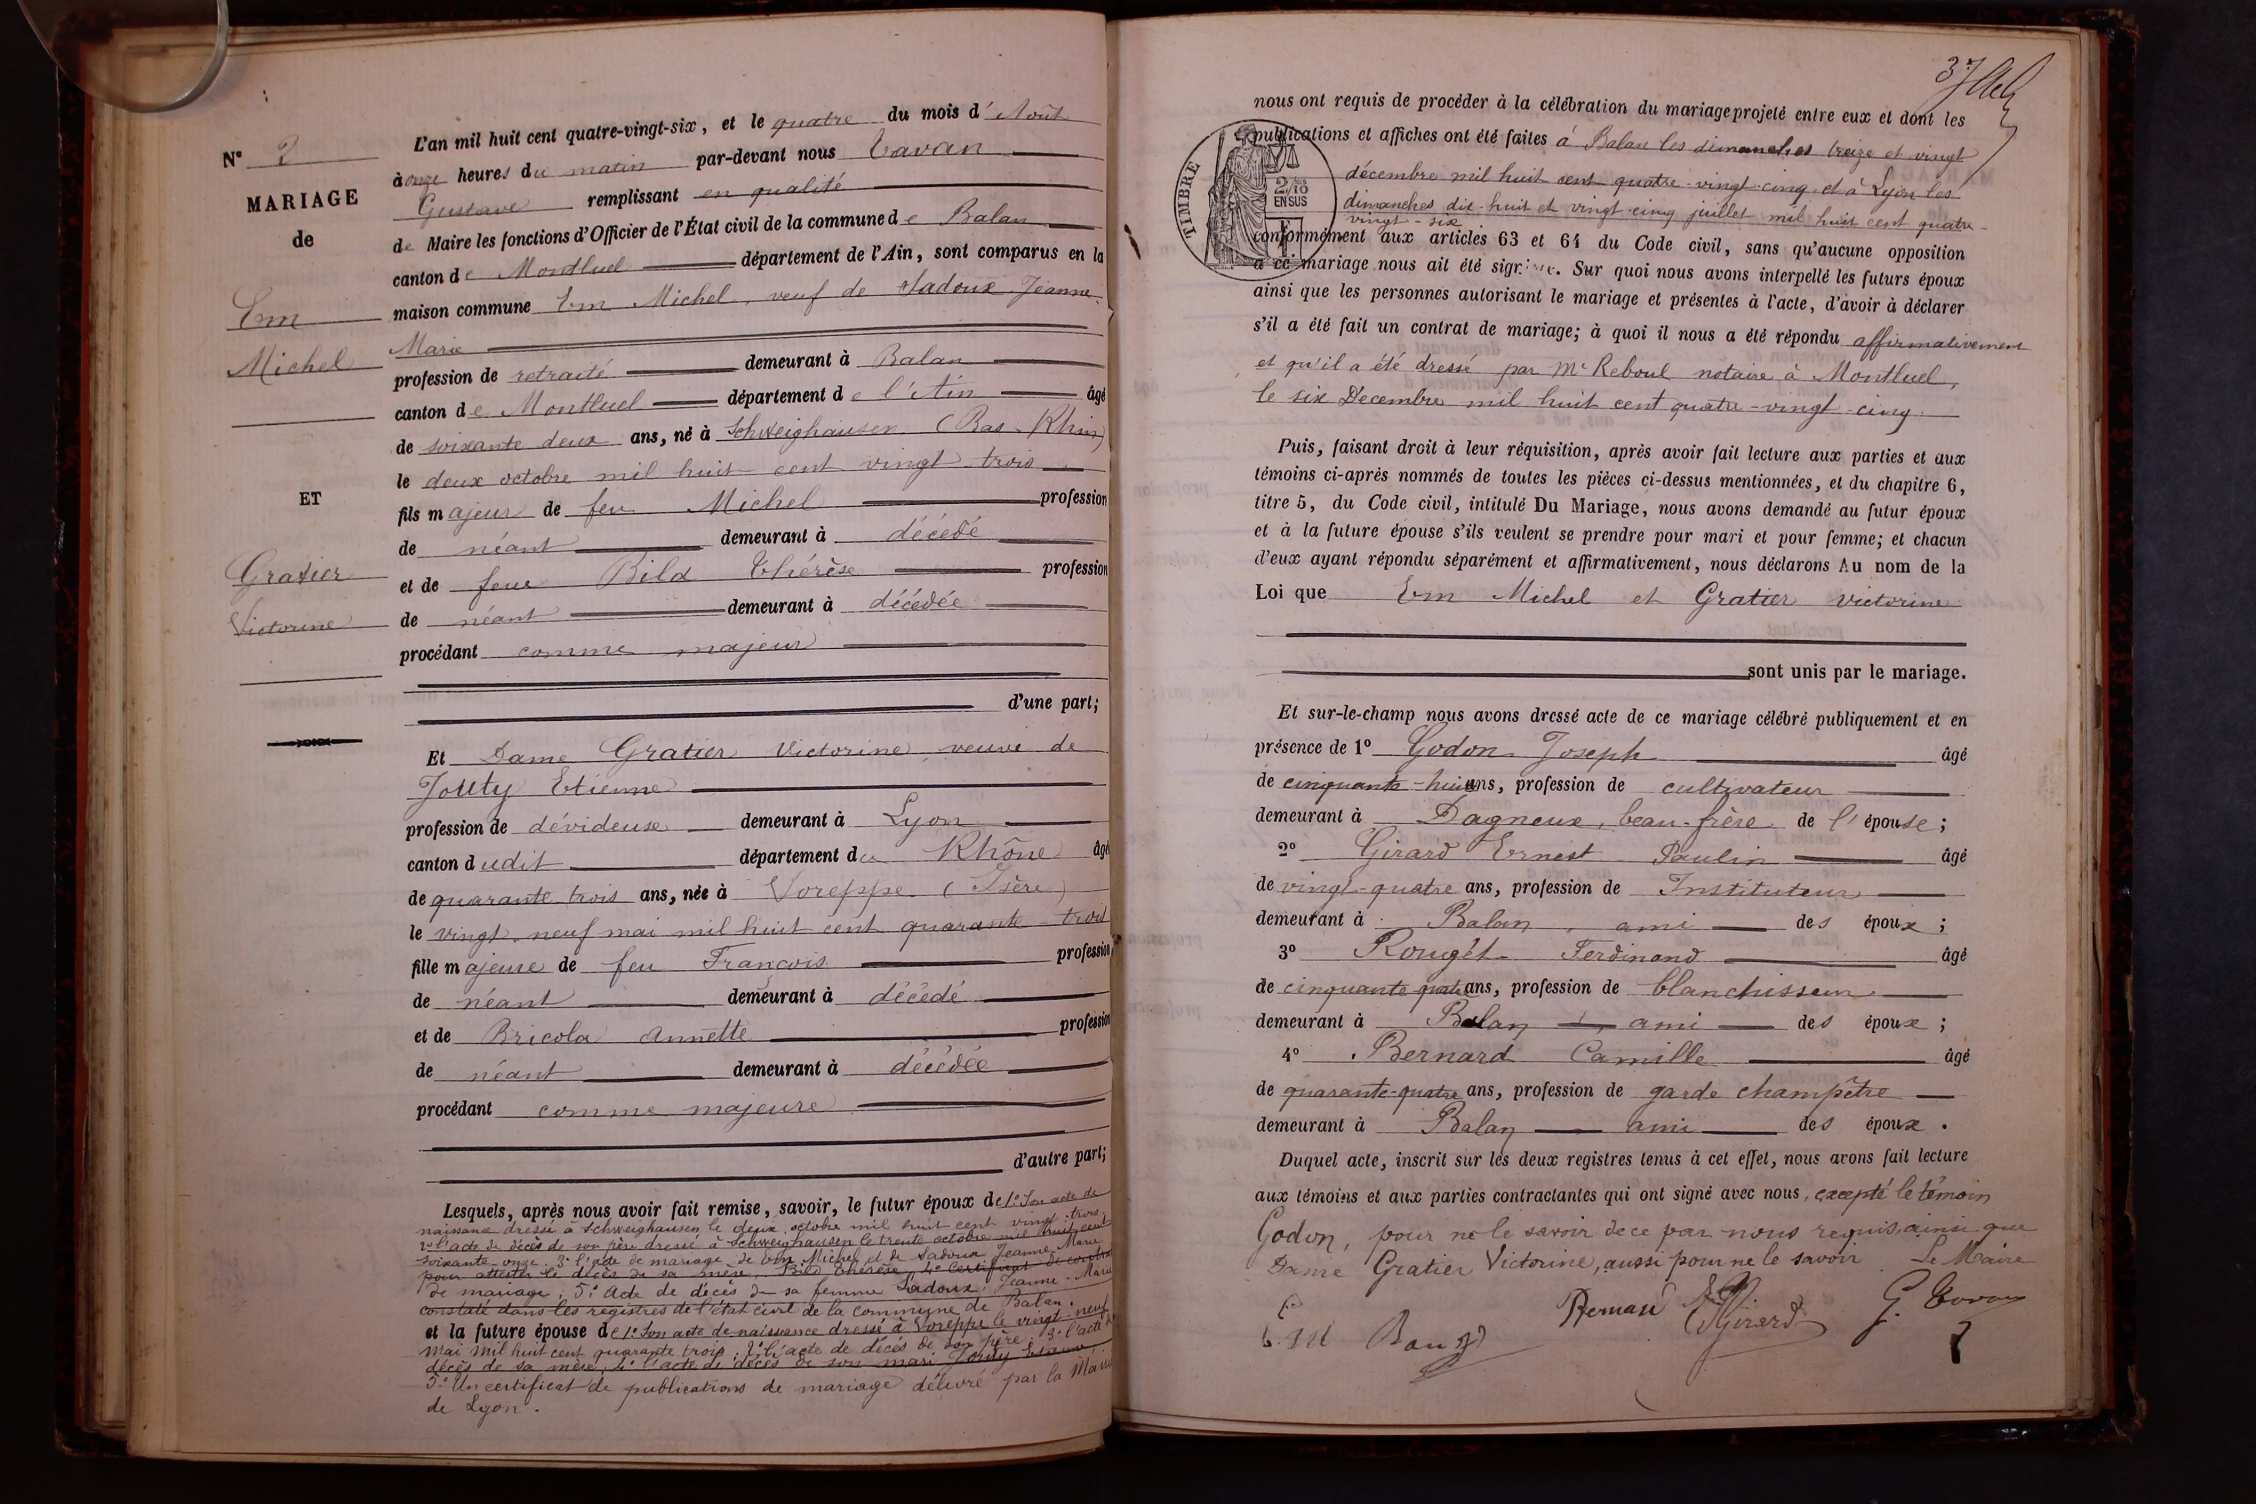 N° 2
MARIAGE
de
Erm
Michel
ET
Gratier
Victorine
L'an mil huit cent quatre-vingt-six, et le quatre du mois d'Août
à onze heures du matin par-devant nous Tavan
Gustave remplissant en qualité
de Maire les fonctions d'Officier de l'État civil de la commune de Balan
canton de Montluel département de l'Ain, sont comparus en la
maison commune Erm Michel, veuf de Sadoux Jeanne
Marie
profession de retraité demeurant à Balan
canton de Montluel département de l'Ain âgé
de soixante deux ans, né à Schweighausen (Bas-Rhin)
le deux octobre mil huit cent vingt trois
fils majeur de feu Michel profession
de néant demeurant à décédé
et de feue Bild Thérèse profession
de néant demeurant à décédée
procédant comme majeur
d'une part;
Et Dame Gratier Victorine, veuve de
Joüty Etienne
profession de dévideuse demeurant à Lyon
canton dudit département du Rhône âgé
de quarante trois ans, née à Voreppe (Isère)
le vingt-neuf mai mil huit cent quarante-trois
fille majeure de feu François profession
de néant demeurant à décédé
et de Bricola Annette profession
de néant demeurant à décédée
procédant comme majeure
d'autre part;
Lesquels, après nous avoir fait remise, savoir, le futur époux de 1° Son acte de
naissance dressé à Schweighausen le deux octobre mil huit cent vingt-trois
2° l'acte de décès de son père dressé à Schweighausen le trente octobre mil huit cent
soixante-onze 3° l'acte de mariage de Erm Michel et de Sadoux Jeanne Marie
pour attester le décès de sa mère, Bild Thérèse, 4° Certificat de contrat
de mariage; 5° Acte de décès de sa femme Sadoux, Jeanne-Marie
constaté dans les registres de l'état civil de la commune de Balan.
et la future épouse de 1° Son acte de naissance dressé à Voreppe le vingt-neuf
mai mil huit cent quarante trois; 2° l'acte de décès de son père; 3° l'acte de
décès de sa mère; 4° l'acte de décès de son mari Joüty Etienne
5° Un certificat de publications de mariage délivré par la Mairie
de Lyon.
37
nous ont requis de procéder à la célébration du mariage projeté entre eux et dont les
publications et affiches ont été faites à Balan les dimanches treize et vingt
décembre mil huit cent quatre-vingt-cinq et à Lyon les
dimanches dix-huit et vingt-cinq juillet mil huit cent quatre-
vingt-six
TIMBRE
2/10
EN SUS
conformément aux articles 63 et 64 du Code civil, sans qu'aucune opposition
à ce mariage nous ait été signifiée. Sur quoi nous avons interpellé les futurs époux
ainsi que les personnes autorisant le mariage et présentes à l'acte, d'avoir à déclarer
s'il a été fait un contrat de mariage; à quoi il nous a été répondu affirmativement
et qu'il a été dressé par Me Reboul notaire à Montluel,
le six Décembre mil huit cent quatre-vingt-cinq.
Puis, faisant droit à leur réquisition, après avoir fait lecture aux parties et aux
témoins ci-après nommés de toutes les pièces ci-dessus mentionnées, et du chapitre 6,
titre 5, du Code civil, intitulé Du Mariage, nous avons demandé au futur époux
et à la future épouse s'ils veulent se prendre pour mari et pour femme; et chacun
d'eux ayant répondu séparément et affirmativement, nous déclarons Au nom de la
Loi que Erm Michel et Gratier Victorine
sont unis par le mariage.
Et sur-le-champ nous avons dressé acte de ce mariage célébré publiquement et en
présence de 1° Godon Joseph âgé
de cinquante-huit ans, profession de cultivateur
demeurant à Dagneux, beau-frère de l'épouse;
2° Girard Ernest Paulin âgé
de vingt-quatre ans, profession de Instituteur
demeurant à Balan, ami des époux;
3° Rougét Ferdinand âgé
de cinquante quatre ans, profession de blanchisseur
demeurant à Balan, ami des époux;
4° Bernard Camille âgé
de quarante-quatre ans, profession de garde champêtre
demeurant à Balan ami des époux.
Duquel acte, inscrit sur les deux registres tenus à cet effet, nous avons fait lecture
aux témoins et aux parties contractantes qui ont signé avec nous, excepté le témoin
Godon, pour ne le savoir de ce par nous requis, ainsi que
Dame Gratier Victorine, aussi pour ne le savoir. Le Maire
Bernard Girard G. Tavan